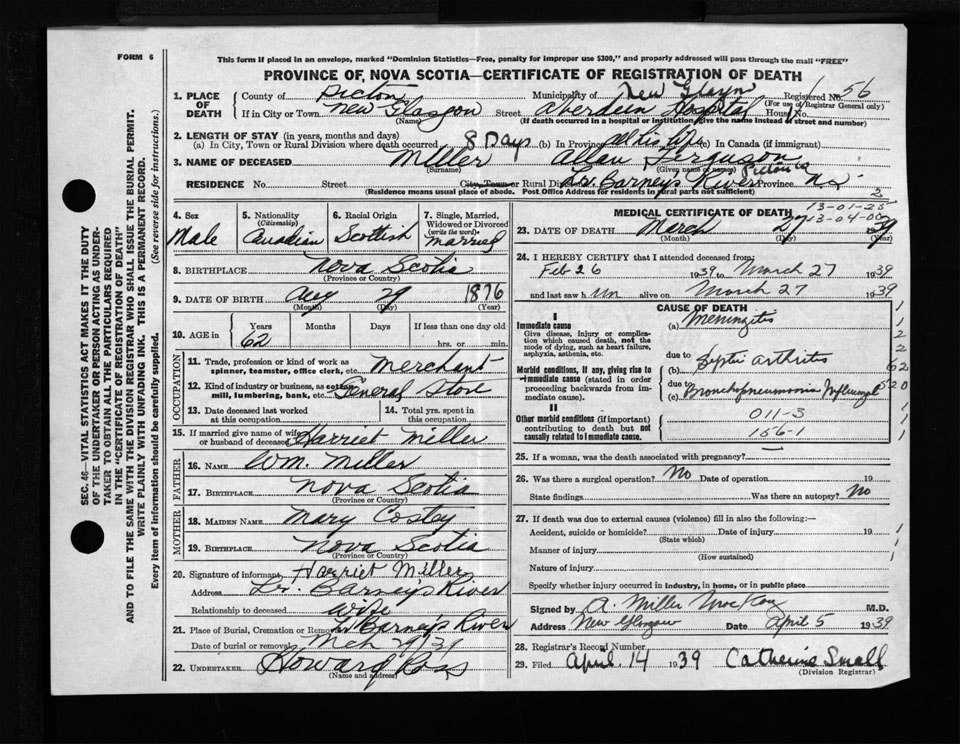 FORM 6
This form if placed in an envelope, marked "Dominion Statistics—Free, penalty for improper use $300," and properly addressed will pass through the mail "FREE"
PROVINCE OF NOVA SCOTIA—CERTIFICATE OF REGISTRATION OF DEATH
1. PLACE OF DEATH County of Pictou Municipality of New Registered No. 56
(For use of Registrar General only)
If in City or Town New Glasgow Street Aberdeen Hospital House
(Name) (If death occurred in a hospital or institution give the name instead of street and number)
2. LENGTH OF STAY (in years, months and days)
(a) In City, Town or Rural Division where death occurred 8 Days (b) In Province all his life (c) In Canada (if immigrant)
3. NAME OF DECEASED Miller Allan Ferguson
(Surname) (Given name or names) Pictou Co
RESIDENCE No. Street City, Town or Rural Division Lr. Barneys River Province N.S.
(Residence means usual place of abode. Post Office Address for residents in rural parts not sufficient)
4. Sex Male
5. Nationality (Citizenship) Canadian
6. Racial Origin Scottish
7. Single, Married, Widowed or Divorced (write the word) married
8. BIRTHPLACE Nova Scotia
(Province or Country)
9. DATE OF BIRTH Aug 29 1876
(Month) (Day) (Year)
10. AGE in Years 62 Months Days If less than one day old hrs. or min.
OCCUPATION
11. Trade, profession or kind of work as spinner, teamster, office clerk, etc. Merchant
12. Kind of industry or business, as cotton mill, lumbering, bank, etc. General Store
13. Date deceased last worked at this occupation
14. Total yrs. spent in this occupation
15. If married give name of wife or husband of deceased Harriet Miller
FATHER
16. NAME Wm. Miller
17. BIRTHPLACE Nova Scotia
(Province or Country)
MOTHER
18. MAIDEN NAME Mary Costey
19. BIRTHPLACE Nova Scotia
(Province or Country)
20. Signature of informant Harriet Miller
Address Lr. Barneys River
Relationship to deceased wife
21. Place of Burial, Cremation or Removal Lr Barneys River
Date of burial or removal Mch
22. UNDERTAKER Howard Ross
(Name and address)
MEDICAL CERTIFICATE OF DEATH
13-01-25
13-04-00
23. DATE OF DEATH March 27 1939
(Month) (Day) (Year)
24. I HEREBY CERTIFY that I attended deceased from:
Feb 26 1939 to March 27 1939
and last saw him alive on March 27 1939
CAUSE OF DEATH
I
Immediate cause
Give disease, injury or complication which caused death, not the mode of dying, such as heart failure, asphyxia, asthenia, etc.
(a) Meningitis
due to
Morbid conditions, if any, giving rise to immediate cause (stated in order proceeding backwards from immediate cause).
(b) Septic arthritis
due to
(c) Bronchopneumonia Influenzal
II
Other morbid conditions (if important) contributing to death but not causally related to immediate cause.
011-3
156-1
25. If a woman, was the death associated with pregnancy?
26. Was there a surgical operation? No Date of operation 19
State findings Was there an autopsy? No
27. If death was due to external causes (violence) fill in also the following:—
Accident, suicide or homicide? Date of injury 19
(State which)
Manner of injury
(How sustained)
Nature of injury
Specify whether injury occurred in industry, in home, or in public place
Signed by A. Miller MacKay M.D.
Address New Glasgow Date April 5 1939
28. Registrar's Record Number
29. Filed April 14 1939 Catherine Small
(Division Registrar)
SEC. 46—VITAL STATISTICS ACT MAKES IT THE DUTY
OF THE UNDERTAKER OR PERSON ACTING AS UNDER-
TAKER TO OBTAIN ALL THE PARTICULARS REQUIRED
IN THE "CERTIFICATE OF REGISTRATION OF DEATH"
AND TO FILE THE SAME WITH THE DIVISION REGISTRAR WHO SHALL ISSUE THE BURIAL PERMIT.
WRITE PLAINLY WITH UNFADING INK. THIS IS A PERMANENT RECORD.
Every item of information should be carefully supplied. (See reverse side for instructions.)